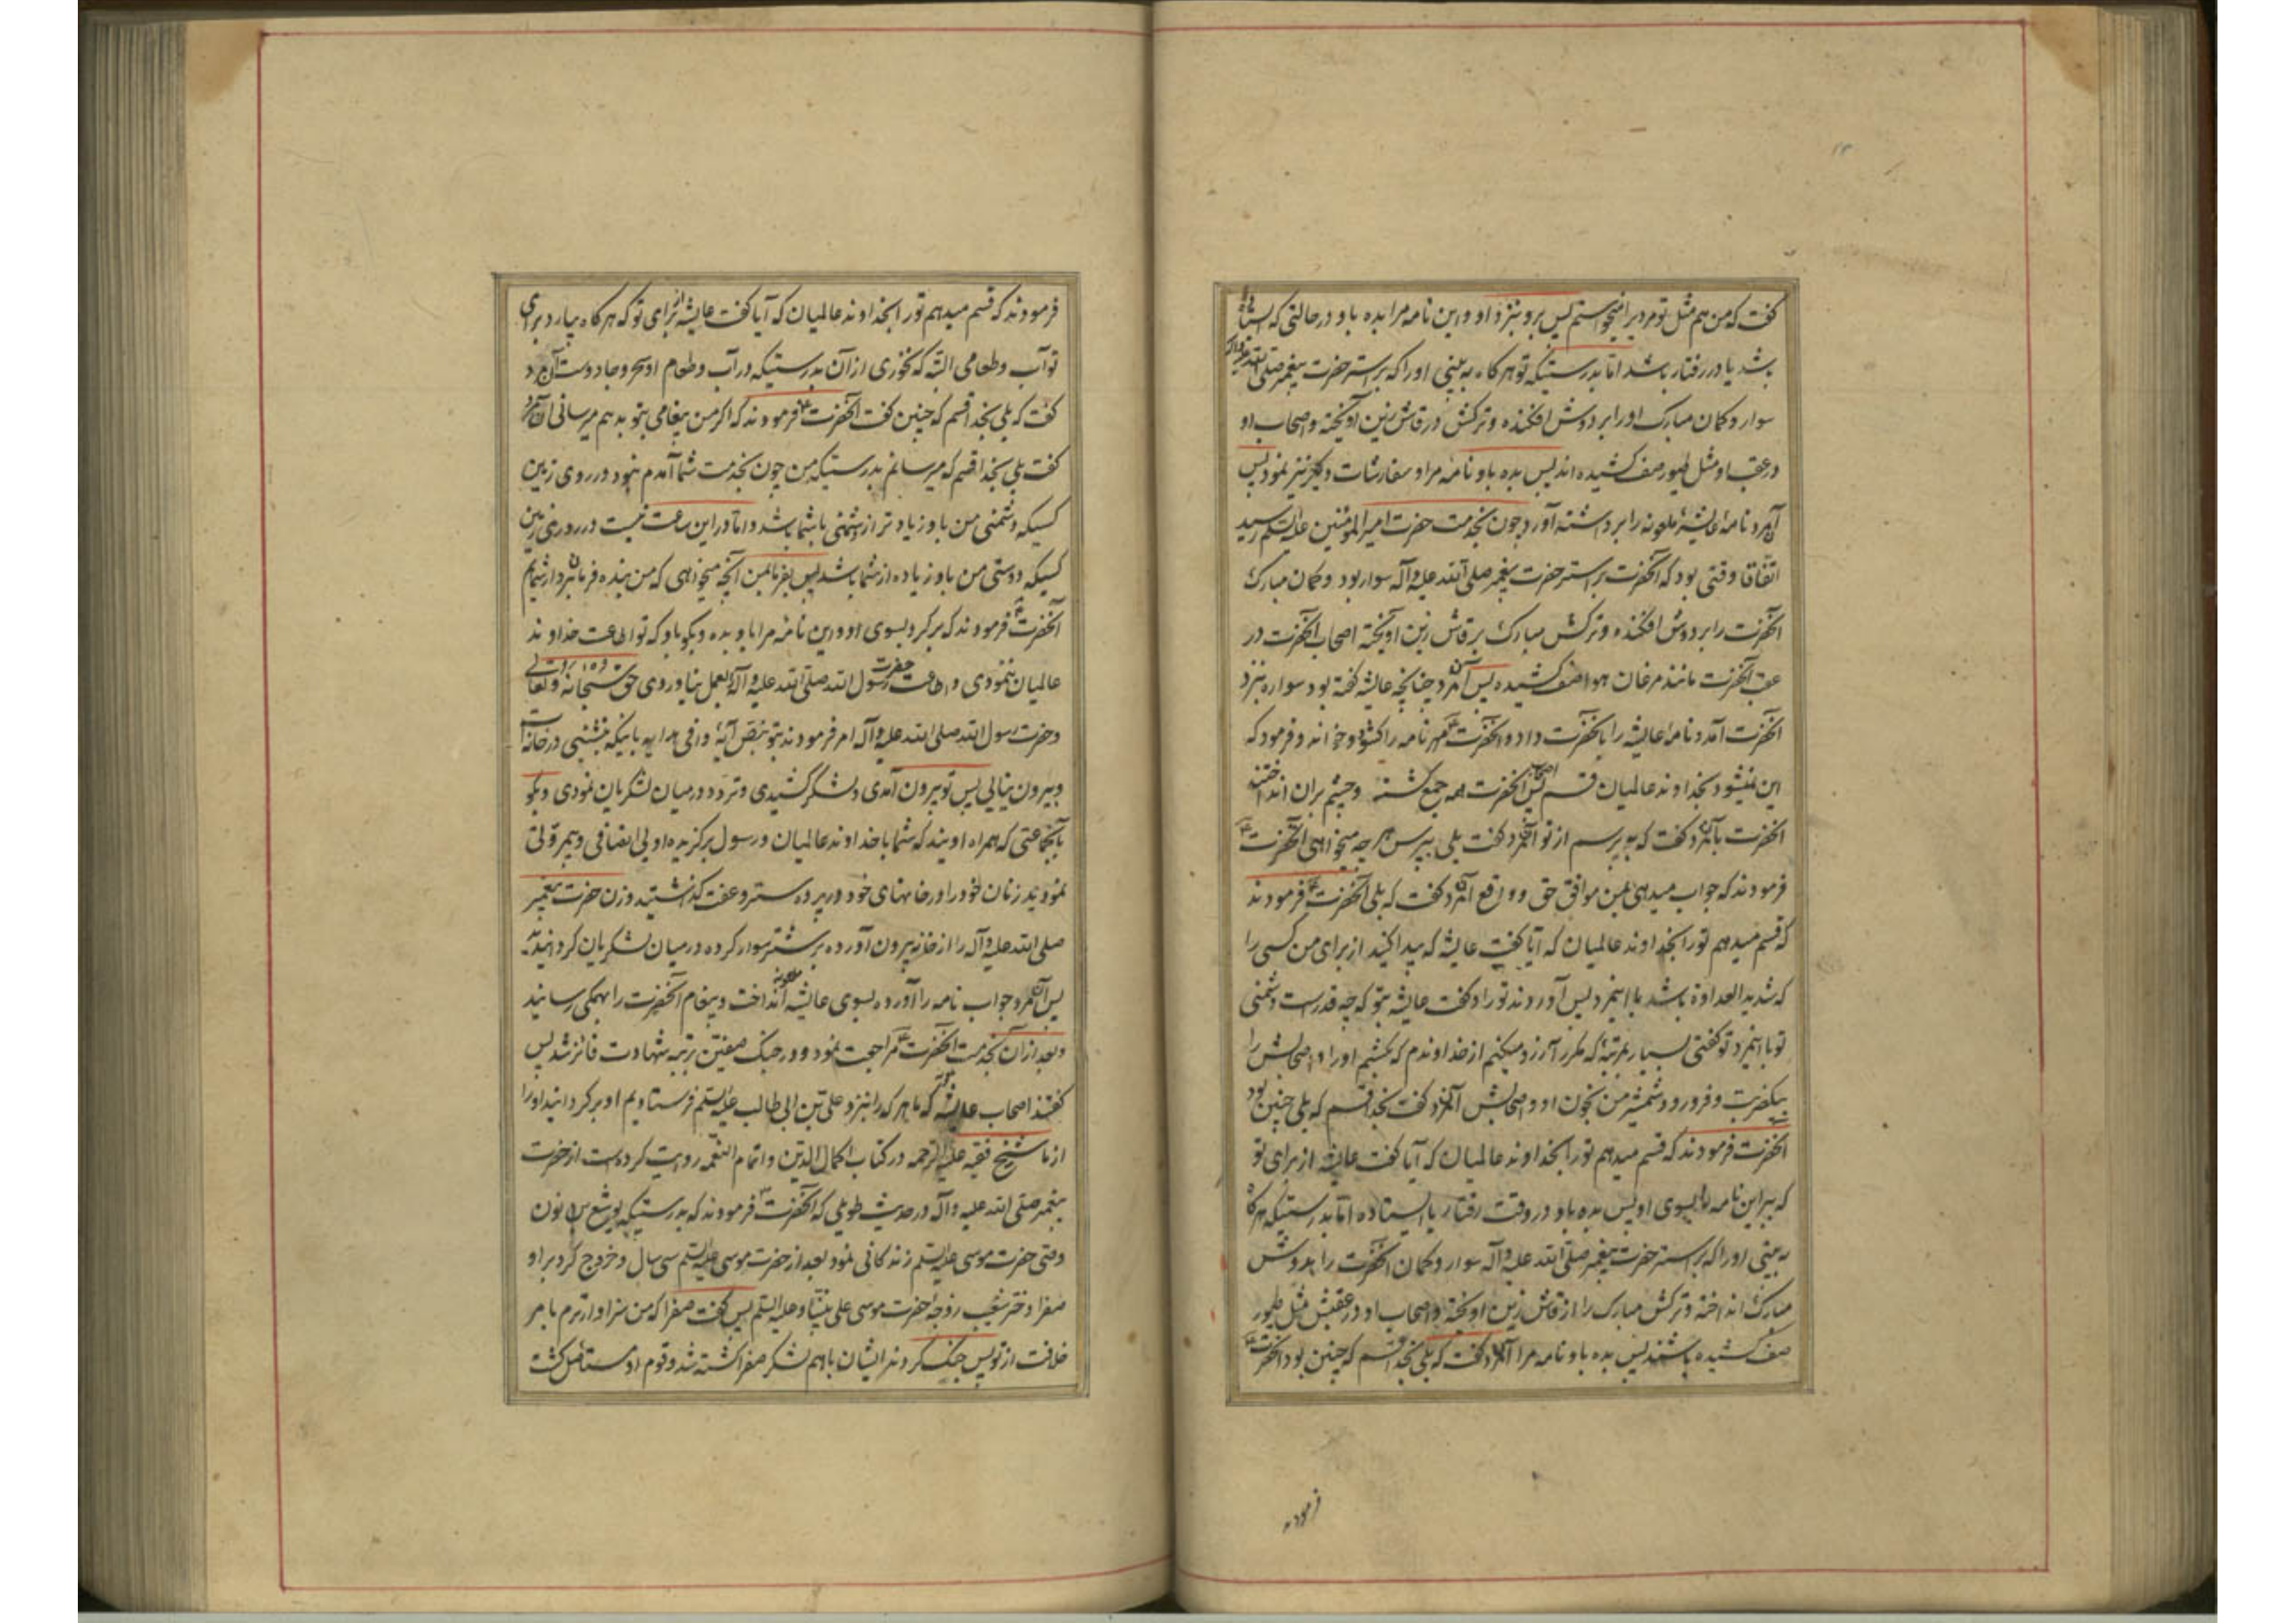 گفت که من هم مثل تو مردیرا میخواستم پس برو بنزد او و این نامه مرا بده باو در حالتی که ایستاده
باشد یا در رفتار باشد اما بدرستیکه تو هرگاه به بینی او را که بر استر حضرت پیغمبر صلی الله علیه و آله
سوار و کمان مبارک او را بر دوش افکنده و ترکش در قاش زین آویخته و اصحاب او
در عقب او مثل طیور صف کشیده اند پس بده باو نامه مرا و سفارشات دیگر نیز نمود پس
آنمرد نامهٔ عایشهٔ ملعونه را برداشته آورد چون بخدمت حضرت امیرالمؤمنین علیه السلم رسید
اتفاقا وقتی بود که آنحضرت بر استر حضرت پیغمبر صلی الله علیه و آله سوار بود و کمان مبارک
آنحضرت را بر دوش افکنده و ترکش مبارک بر قاش زین آویخته اصحاب آنحضرت در
عقب آنحضرت مانند مرغان هوا صف کشیده پس آنمرد چنانچه عایشه گفته بود سواره بنزد
آنحضرت آمد و نامهٔ عایشه را بآنحضرت داد و آنحضرت ع مهر نامه را کشود و خواند و فرمود که
این نمیشود بخداوند عالمیان قسم پس اصحاب آنحضرت همه جمع گشته و چشم بران انداختند
آنحضرت بآنمرد گفت که به پرسم از تو آنمرد گفت بلی بپرس هر چه میخواهی آنحضرت ع
فرمودند که جواب میدهی بمن موافق حق و واقع آنمرد گفت که بلی آنحضرت ع فرمودند
که قسم میدهم تو را بخداوند عالمیان که آیا گفت عایشه که پیدا کنید از برای من کسی را
که شدید العداوة باشد با اینمرد پس آوردند تو را و گفت عایشه بتو که چه قدرست دشمنی
تو با اینمرد تو گفتی بسیار مرتبهٔ که مکرر آرزو میکنم از خداوندم که بکشم او را و اصحابش را
بیکضربت و فرورود شمشیر من بخون او و اصحابش آنمرد گفت بخدا قسم که بلی چنین بود
آنحضرت فرمودند که قسم میدهم تو را بخداوند عالمیان که آیا گفت عایشه از برای تو
که ببر این نامه را بسوی او پس بده باو در وقت رفتار یا ایستاده اما بدرستیکه هرگاه
به بینی او را که بر استر حضرت پیغمبر صلی الله علیه و آله سوار و کمان آنحضرت را بدوش
مبارک انداخته و ترکش مبارک را از قاش زین آویخته و اصحاب او در عقبش مثل طیور
صف کشیده باشند پس بده باو نامه مرا آنمرد گفت که بلی بخدا قسم که چنین بود آنحضرت ع
فرمودند
فرمودند که قسم میدهم تو را بخداوند عالمیان که آیا گفت عایشه از برای تو که هرگاه بیارد برای
تو آب و طعامی البته که نخوری از آن بدرستیکه در آب و طعام او سحر و جادوست آنمرد
گفت که بلی بخدا قسم که چنین گفت آنحضرت ع فرمودند که اگر من پیغامی بتو بدهم میرسانی آنمرد
گفت بلی بخدا قسم که میرسانم بدرستیکه من چون بخدمت شما آمدم نبود در روی زمین
کسیکه دشمنی من باو زیادتر از دشمنی باشما باشد و اما در این ساعت نیست در روی زمین
کسیکه دوستی من باو زیاده از شما باشد پس بفرما بمن آنچه میخواهی که من بنده فرمانبردار شمایم
آنحضرت ع فرمودند که برگرد بسوی او و این نامهٔ مرا باو بده و بگو باو که تو اطاعت خداوند
عالمیان ننمودی و اطاعت حضرت رسول الله صلی الله علیه و آله بعمل نیاوردی حق سبحانه و تعالی
و حضرت رسول الله صلی الله علیه و آله امر فرمودند بتو بنص آیهٔ وافی هدایه باینکه بنشینی در خانه ات
و بیرون نیایی پس تو بیرون آمدی و لشکر کشیدی و تردد در میان لشکریان نمودی و بگو
بآنجماعتی که همراه اویند که شما با خداوند عالمیان و رسول برگزیده او بی انصافی و بیمروّتی
نمودید زنان خود را در خانهای خود در پرده ستر و عفت گذاشتید و زن حضرت پیغمبر
صلی الله علیه و آله را از خانه بیرون آورده بر شتر سوار کرده در میان لشکریان گردانیدید
پس آنمرد جواب نامه را آورده بسوی عایشه ملعونه انداخت و پیغام آنحضرت را بهمگی رسانید
و بعد از آن بخدمت آنحضرت ع مراجعت نمود و در جنگ صفین برتبه شهادت فائز شد پس
گفتند اصحاب عایشه که ما هر که را بنزد علی بن ابی طالب علیه السلم فرستادیم او برگردانید او را
از ما شیخ فقیه علیه الرحمه در کتاب اکمال الدین و اتمام النعمه روایت کرده است از حضرت
پیغمبر صلی الله علیه و آله در حدیث طویلی که آنحضرت ص فرمودند که بدرستیکه یوشع بن نون
وصی حضرت موسی علیه السلم زندگانی نمود بعد از حضرت موسی علیه السلم سی سال و خروج کرد بر او
صفرا دختر شعیب زوجهٔ حضرت موسی علی نبینا و علیه السلم پس گفت صفرا که من سزاوارترم بامر
خلافت از تو پس جنگ کردند ایشان باهم لشکر صفرا کشته شد و قوم او مستاصل گشت